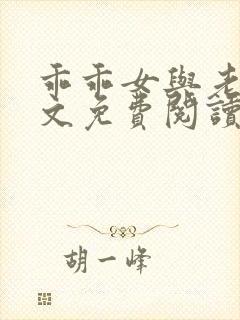 乖乖女與老
文免費閱讀
胡一峰